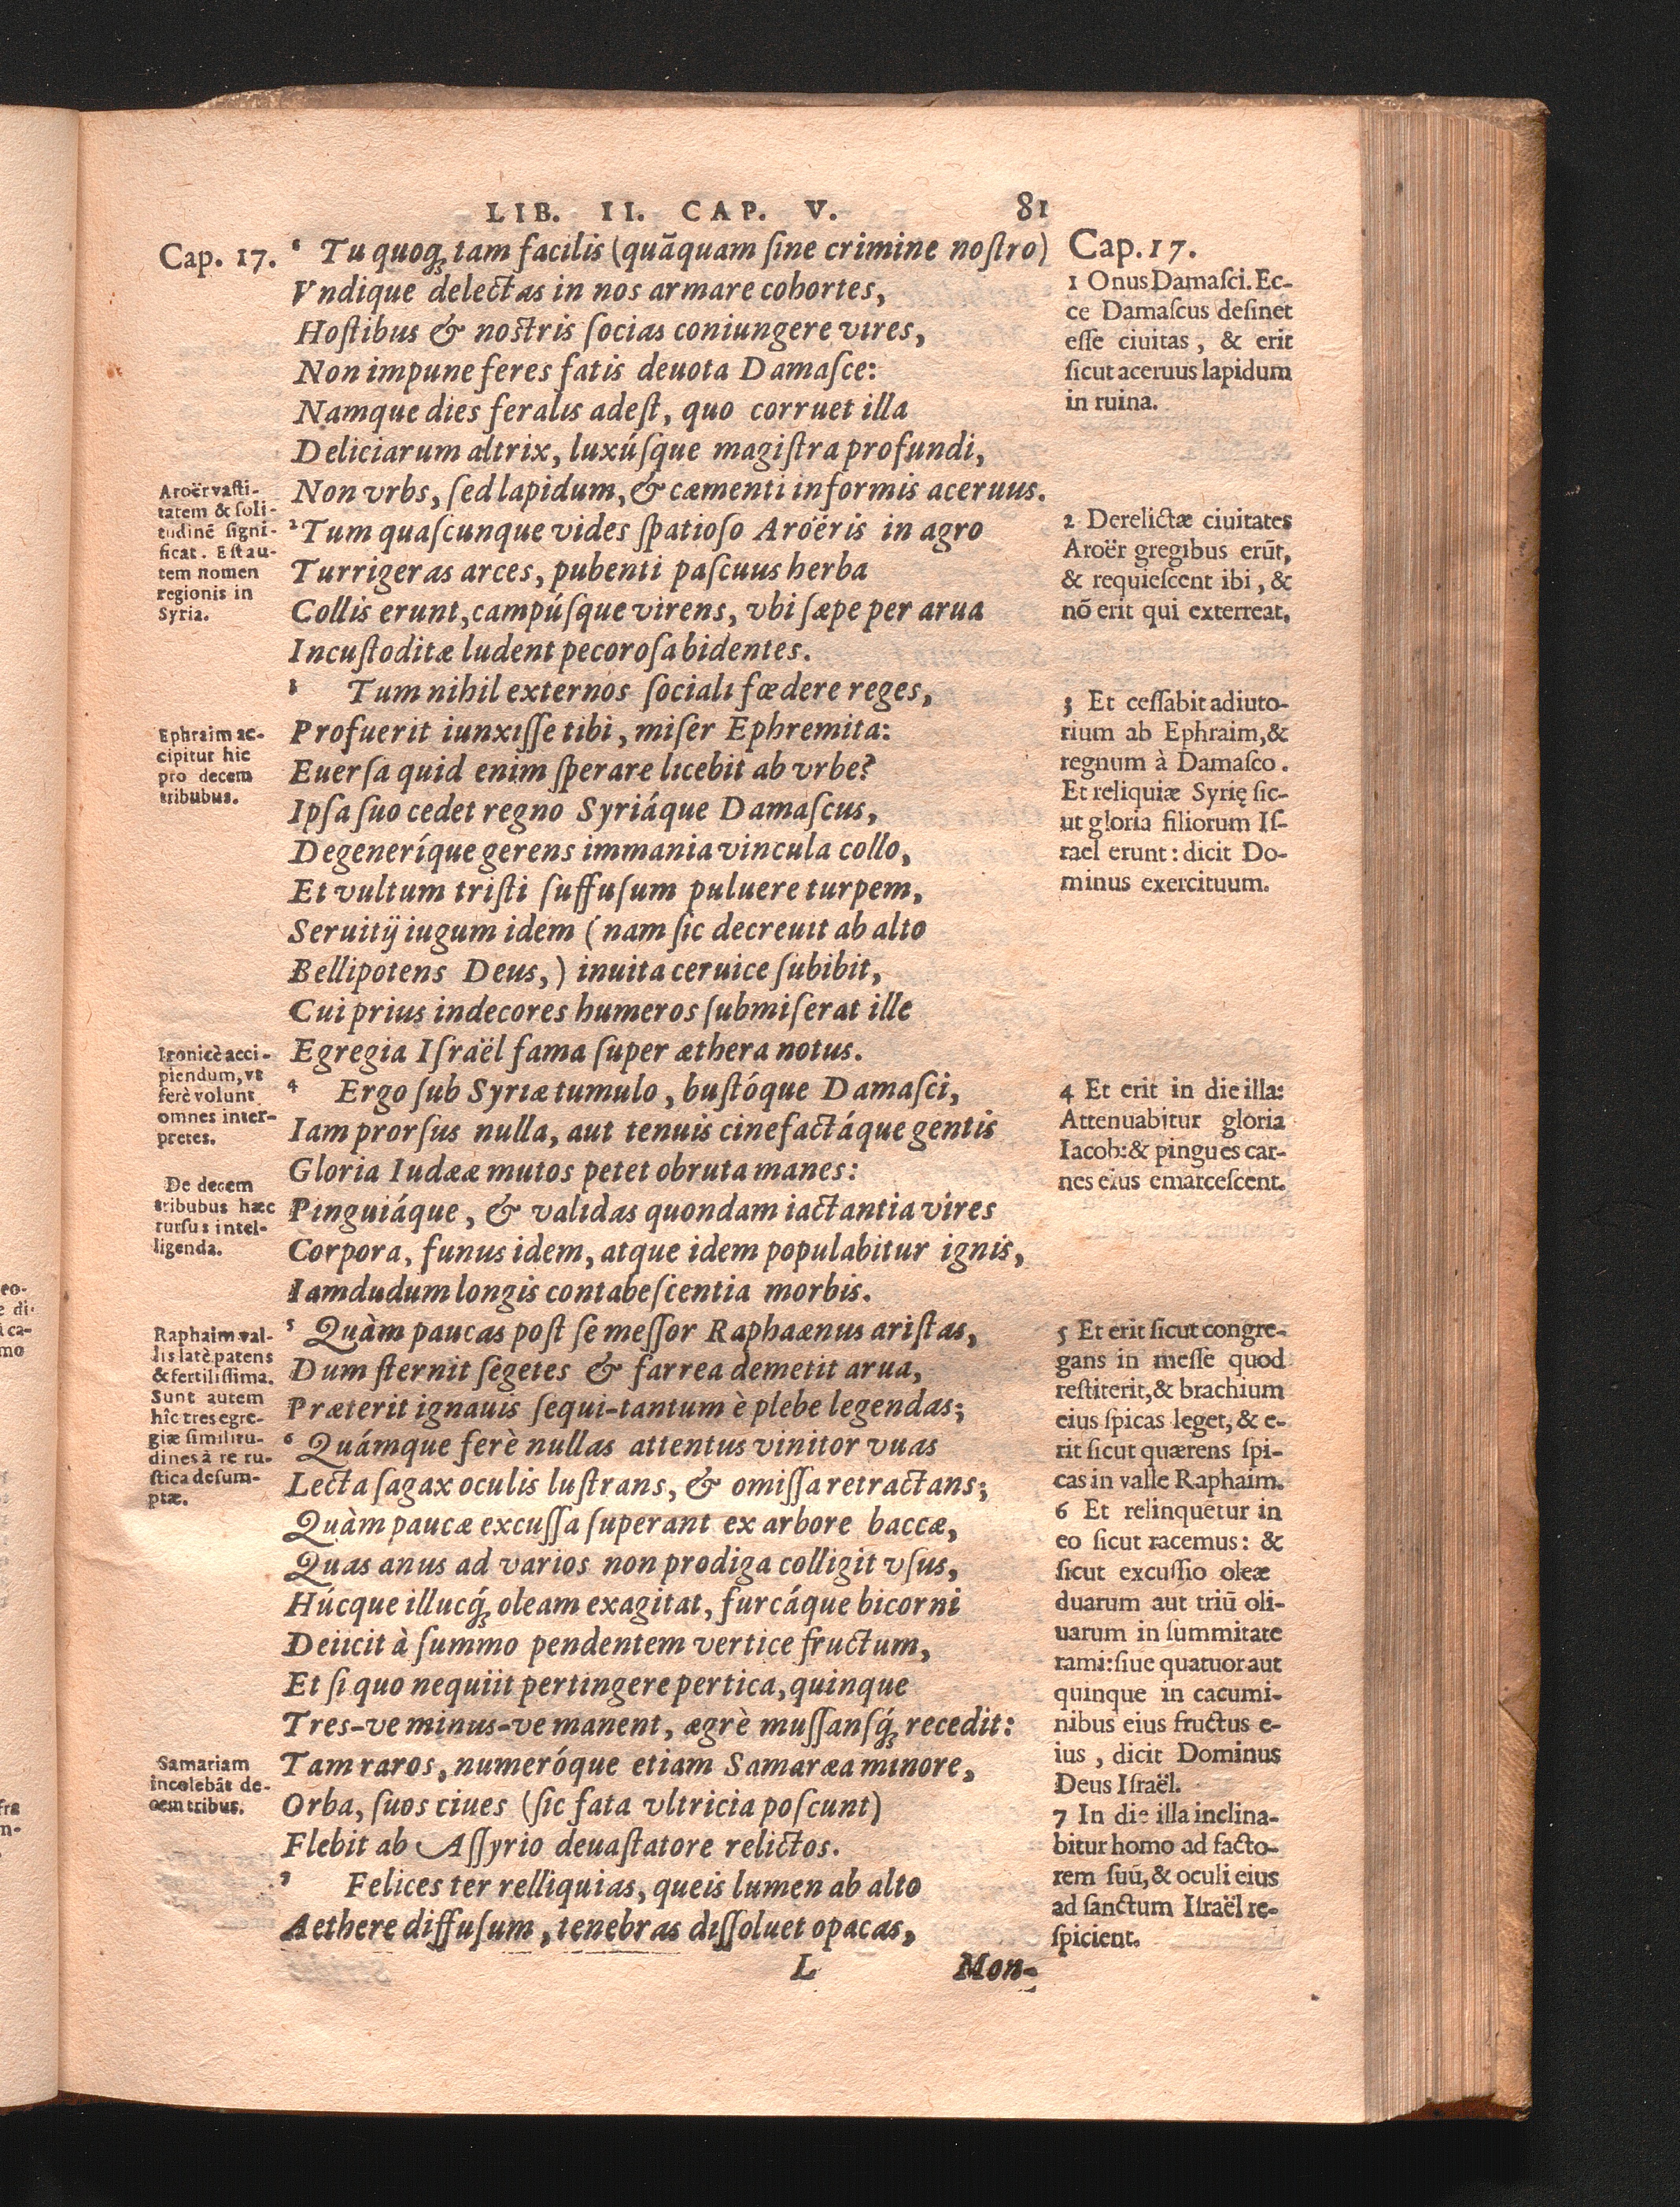 LIB. II. CAP. V. 81
Cap. 17.
¹ Tu quoq; tam facilis (quãquam ſine crimine noſtro)
Vndique delectas in nos armare cohortes,
Hoſtibus & noſtris ſocias coniungere vires,
Non impune feres fatis deuota Damaſce:
Namque dies feralis adeſt, quo corruet illa
Deliciarum altrix, luxúſque magiſtra profundi,
Non vrbs, ſed lapidum, & cæmenti informis aceruus.
² Tum quaſcunque vides ſpatioſo Aroëris in agro
Turrigeras arces, pubenti paſcuus herba
Collis erunt, campúſque virens, vbi ſæpe per arua
Incuſtoditæ ludent pecoroſa bidentes.
³ Tum nihil externos ſociali fœdere reges,
Profuerit iunxiſſe tibi, miſer Ephremita:
Euerſa quid enim ſperare licebit ab vrbe?
Ipſa ſuo cedet regno Syriáque Damaſcus,
Degeneríque gerens immania vincula collo,
Et vultum triſti ſuffuſum puluere turpem,
Seruitij iugum idem (nam ſic decreuit ab alto
Bellipotens Deus,) inuita ceruice ſubibit,
Cui prius indecores humeros ſubmiſerat ille
Egregia Iſraël fama ſuper æthera notus.
⁴ Ergo ſub Syriæ tumulo, buſtóque Damaſci,
Iam prorſus nulla, aut tenuis cinefactáque gentis
Gloria Iudææ mutos petet obruta manes:
Pinguiáque, & validas quondam iactantia vires
Corpora, funus idem, atque idem populabitur ignis,
Iamdudum longis contabeſcentia morbis.
⁵ Quàm paucas poſt ſe meſſor Raphaænus ariſtas,
Dum ſternit ſegetes & farrea demetit arua,
Præterit ignauis ſequi-tantum è plebe legendas;
⁶ Quámque ferè nullas attentus vinitor vuas
Lecta ſagax oculis luſtrans, & omiſſa retractans;
Quàm paucæ excuſſa ſuperant ex arbore baccæ,
Quas anus ad varios non prodiga colligit vſus,
Húcque illucq́; oleam exagitat, furcáque bicorni
Deiicit à ſummo pendentem vertice fructum,
Et ſi quo nequiit pertingere pertica, quinque
Tres-ve minus-ve manent, ægrè muſſanſq́; recedit:
Tam raros, numeróque etiam Samaræa minore,
Orba, ſuos ciues (ſic fata vltricia poſcunt)
Flebit ab Aſſyrio deuaſtatore relictos.
⁷ Felices ter relliquias, queis lumen ab alto
Aethere diffuſum, tenebras diſſoluet opacas,
L Mon-
Aroër vaſti-
tatem & ſoli-
tudinẽ ſigni-
ficat. Eſt au-
tem nomen
regionis in
Syria.
Ephraim ac-
cipitur hic
pro decem
tribubus.
Ironicè acci-
piendum, vt
ferè volunt
omnes inter-
pretes.
De decem
tribubus hæc
rurſus intel-
ligenda.
Raphaim val-
lis latè patens
& fertiliſſima.
Sunt autem
hîc tres egre-
giæ ſimilitu-
dines à re ru-
ſtica deſum-
ptæ.
Samariam
incolebãt de-
cem tribus.
Cap. 17.
1 Onus Damaſci. Ec-
ce Damaſcus deſinet
eſſe ciuitas, & erit
ſicut aceruus lapidum
in ruina.
2 Derelictæ ciuitates
Aroër gregibus erũt,
& requieſcent ibi, &
nõ erit qui exterreat.
3 Et ceſſabit adiuto-
rium ab Ephraim, &
regnum à Damaſco.
Et reliquiæ Syrię ſic-
ut gloria filiorum Iſ-
rael erunt: dicit Do-
minus exercituum.
4 Et erit in die illa:
Attenuabitur gloria
Iacob: & pingues car-
nes eius emarceſcent.
5 Et erit ſicut congre-
gans in meſſe quod
reſtiterit, & brachium
eius ſpicas leget, & e-
rit ſicut quærens ſpi-
cas in valle Raphaim.
6 Et relinquẽtur in
eo ſicut racemus: &
ſicut excuſſio oleæ
duarum aut triũ oli-
uarum in ſummitate
rami: ſiue quatuor aut
quinque in cacumi-
nibus eius fructus e-
ius, dicit Dominus
Deus Iſraël.
7 In die illa inclina-
bitur homo ad facto-
rem ſuũ, & oculi eius
ad ſanctum Iſraël re-
ſpicient.